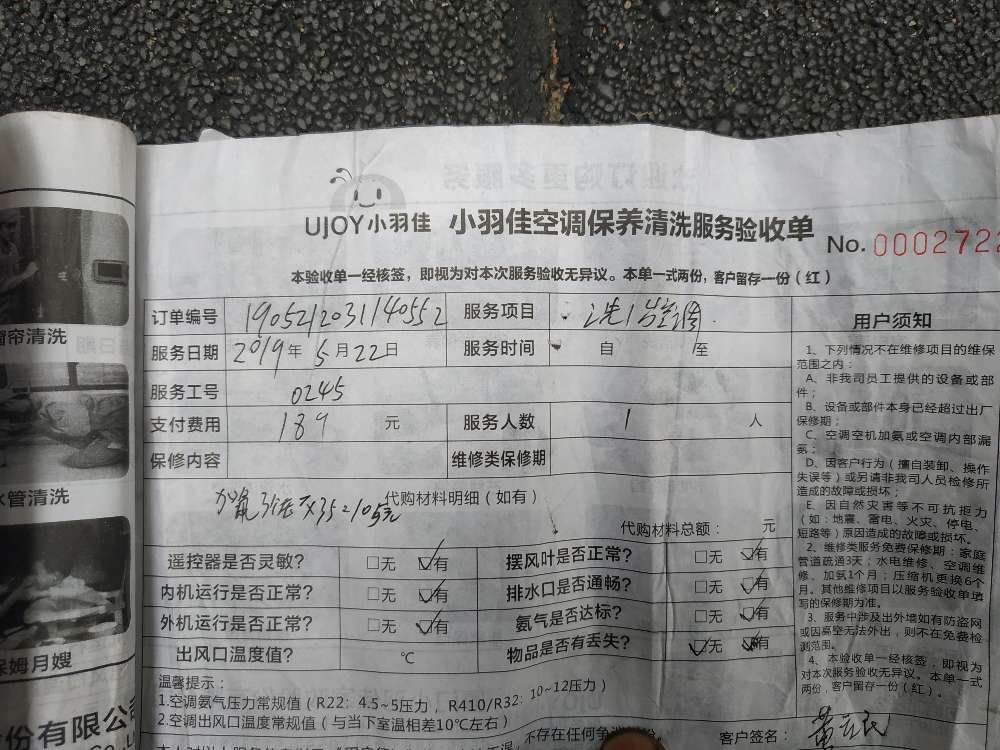 欢迎订购更多服务
UJOY小羽佳 小羽佳空调保养清洗服务验收单
No. 0002722
本验收单一经核签，即视为对本次服务验收无异议。本单一式两份，客户留存一份（红）
订单编号 190521203114055２ 服务项目 洗1台空调
服务日期 2019年5月22日 服务时间 自 至
服务工号 0245
支付费用 189 元 服务人数 1 人
保修内容 维修类保修期
加氟3压 ×35=105元 代购材料明细（如有）
代购材料总额： 元
遥控器是否灵敏？ □无 ☑有 摆风叶是否正常？ □无 ☑有
内机运行是否正常？ □无 ☑有 排水口是否通畅？ □无 ☑有
外机运行是否正常？ □无 ☑有 氨气是否达标？ □无 ☑有
出风口温度值？ ℃ 物品是否有丢失？ ☑无 有
温馨提示：
1.空调氨气压力常规值（R22：4.5~5压力， R410/R32：10~12压力）
2.空调出风口温度常规值（与当下室温相差10℃左右）
不存在任何争
客户签名：
用户须知
1、下列情况不在维修项目的维保
范围之内：
A、非我司员工提供的设备或部
件；
B、设备或部件本身已经超过出厂
保修期；
C、空调空机加氨或空调内部漏
氨；
D、因客户行为（擅自装卸、操作
失误等）或另请非我司人员检修所
造成的故障或损坏；
E、因自然灾害等不可抗拒力
（如：地震、雷电、火灾、停电、
短路等）原因造成的故障或损坏。
2、维修类服务免费保修期：家庭
管道疏通3天；水电维修、空调维
修、加氨1个月；压缩机更换6个
月。其他维修项目以服务验收单填
写的保修期为准。
3、服务中涉及出外墙如有防盗网
或因高空无法外出，则不在免费检
测范围。
4、本验收单一经核签，即视为
对本次服务验收无异议。本单一式
两份，客户留存一份（红）。
窗帘清洗
水管清洗
保姆月嫂
份有限公司